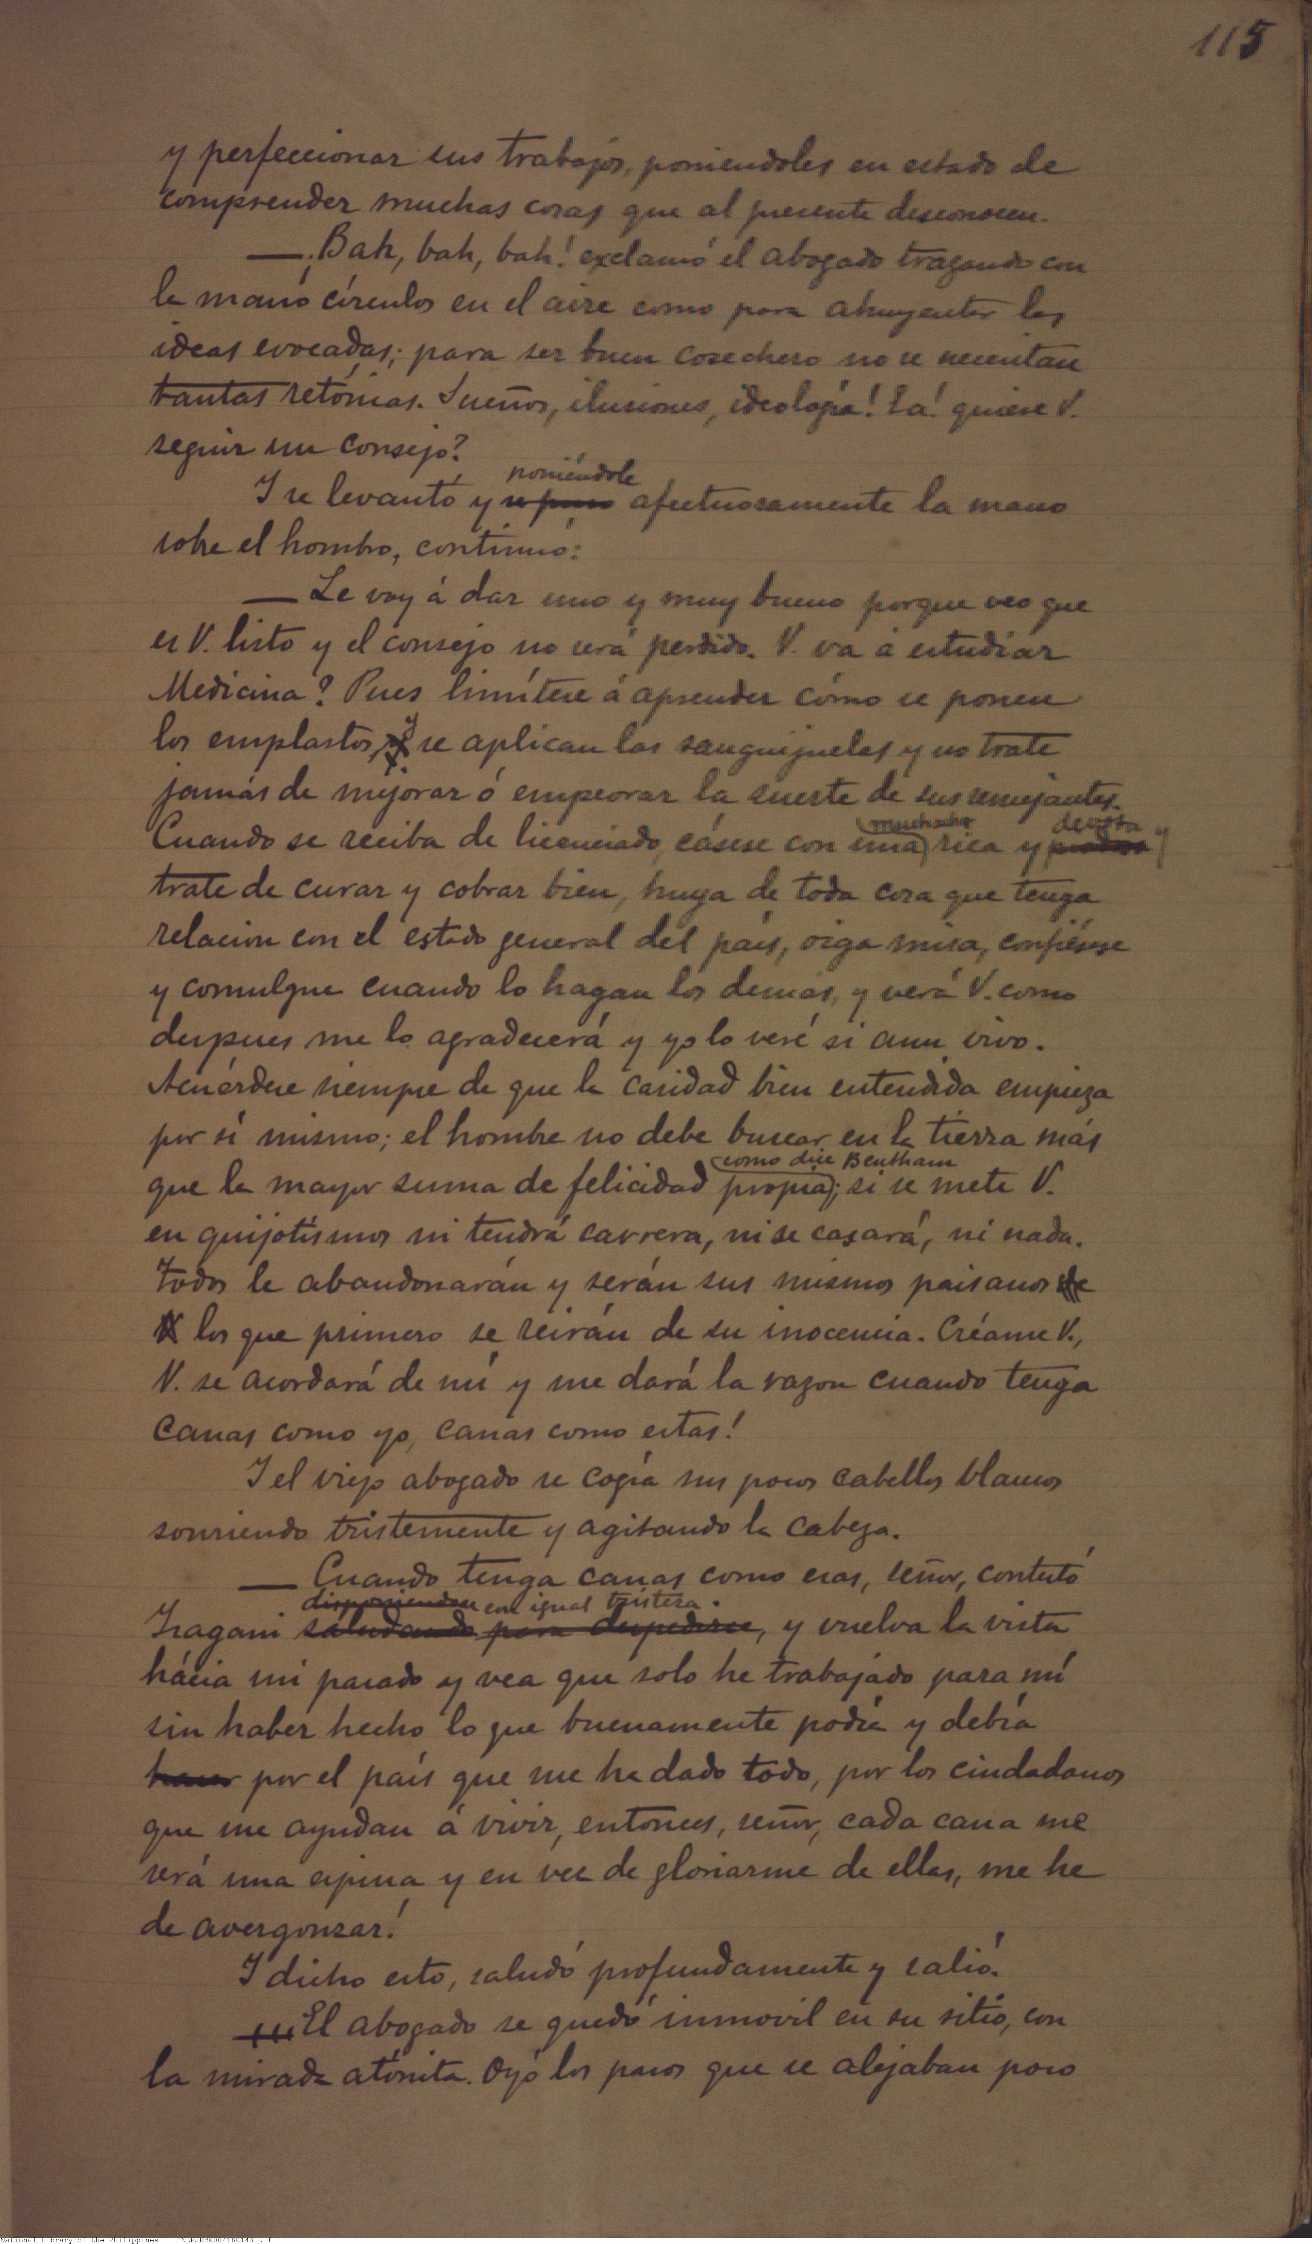 115
y perfeccionar sus trabajos, poniendoles en estado de
comprender muchas cosas que al presente desconocen.
— ¡Bah, bah, bah! exclamó el abogado trazando con
la mano círculos en el aire como para ahuyentar las
ideas evocadas; para ser buen cosechero no se necesitan
tantas retóricas. Sueños, ilusiones, ideología! Ea! quiere V.
seguir un consejo?
poniéndole
Y se levantó y se puso afectuosamente la mano
sobre el hombro, continuó:
— Le voy á dar uno y muy bueno porque veo que
es V. listo y el consejo no será perdido. V. va á estudiar
Medicina? Pues limítese á aprender cómo se ponen
los emplastos, y se aplican las sanguijuelas y no trate
jamás de mejorar ó empeorar la suerte de sus semejantes.
muchacha devota
Cuando se reciba de licenciado, cásese con una rica y y
trate de curar y cobrar bien, huya de toda cosa que tenga
relacion con el estado general del país, oiga misa, confiésese
y comulgue cuando lo hagan los demás, y verá V. como
despues me lo agradecerá y yo lo veré si aun vivo.
Acuérdese siempre de que la caridad bien entendida empieza
por sí mismo; el hombre no debe buscar en la tierra más
como dice Bentham
que la mayor suma de felicidad propia; si se mete V.
en quijotismos ni tendrá carrera, ni se casará, ni nada.
Todos le abandonarán y serán sus mismos paisanos
los que primero se reirán de su inocencia. Créame V.,
V. se acordará de mí y me dará la razon cuando tenga
canas como yo, canas como estas!
Y el viejo abogado se cogía sus pocos cabellos blancos
sonriendo tristemente y agitando la cabeza.
— Cuando tenga canas como esas, señor, contestó
disponiendose con igual tristeza.
Isagani saludando para despedirse, y vuelva la vista
hácia mi pasado y vea que solo he trabajado para mí
sin haber hecho lo que buenamente podía y debía
hacer por el país que me ha dado todo, por los ciudadanos
que me ayudan á vivir, entonces, señor, cada cana me
será una espina y en vez de gloriarme de ellas, me he
de avergonzar!
Y dicho esto, saludó profundamente y salió.
El abogado se quedó inmovil en su sitio, con
la mirada atónita. Oyó los pasos que se alejaban poco